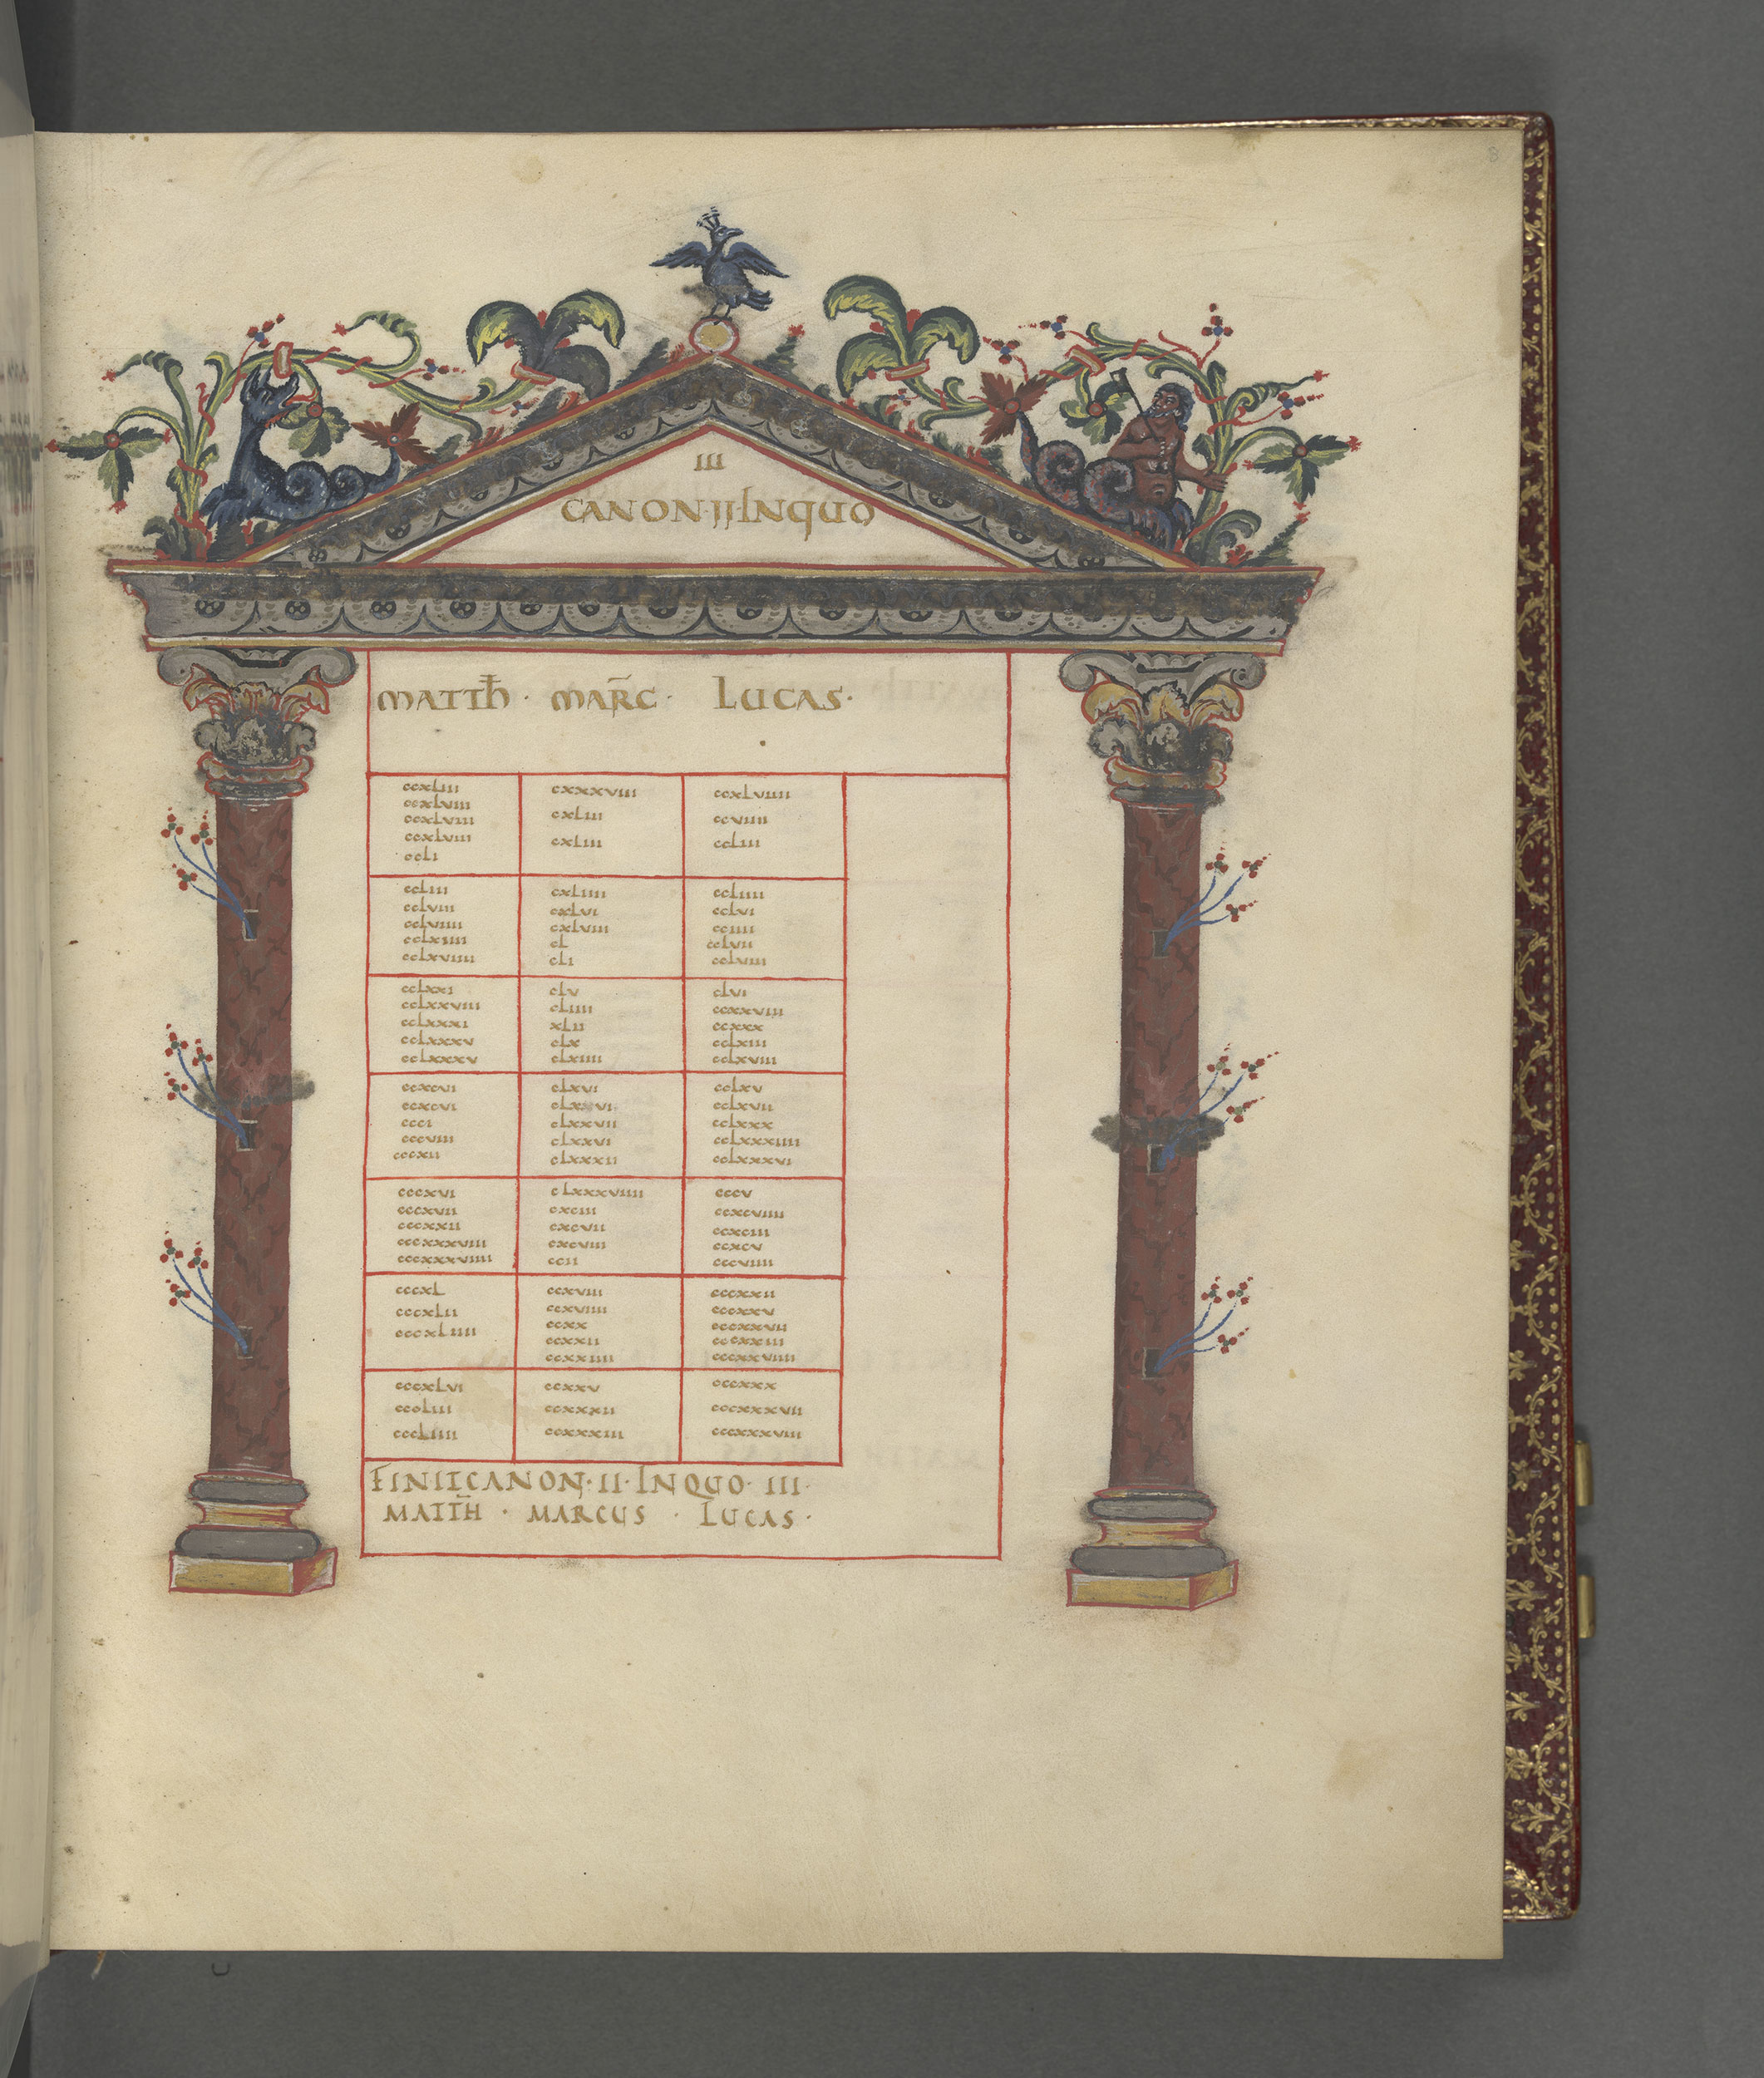 8
III
CANON·II·INQUO
MATTH · MARC · LUCAS ·
ccxliii cxxxviii ccxlviiii
ccxlviii cxliii ccviiii
ccxlviii cxliii ccliii
ccxlviii
ccli
ccliii cxliiii ccliiii
cclviii cxlvi cclvi
cclviiii cxlviii cciiii
cclxiiii cl cclvii
cclxviiii cli cclviii
cclxxi clv clvi
cclxxviiii cliiii ccxxviii
cclxxxi xlii ccxxx
cclxxxv clx cclxiii
cclxxxv clxiiii cclxviii
ccxcvi clxvi cclxv
ccxcvi clxxvi cclxvii
ccci clxxvii cclxxx
cccviii clxxvi cclxxxiiii
cccxii clxxxii cclxxxvi
cccxvi clxxxviiii cccv
cccxvii cxciii ccxcviiii
cccxxii cxcvii ccxciii
cccxxxviii cxcviii ccxcv
cccxxxviiii ccii cccviiii
cccxl ccxviii cccxxii
cccxlii ccxviiii cccxxv
cccxliiii ccxx cccxxvii
ccxxii cccxxiii
ccxxiiii cccxxviiii
cccxlvi ccxxv cccxxx
cccliii ccxxxii cccxxxvii
cccliiii ccxxxiii cccxxxviii
FINIT CANON·II·INQUO·III·
MATTH · MARCUS · LUCAS ·